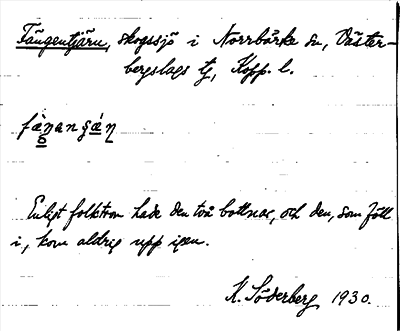 Fängentjärn, skogssjö i Norrbärke sn, Väster-
bergslags tg, Kopp. l.
Enligt folktron hade den två bottnar, och den, som föll
i, kom aldrig upp igen.
K. Söderberg 1930.